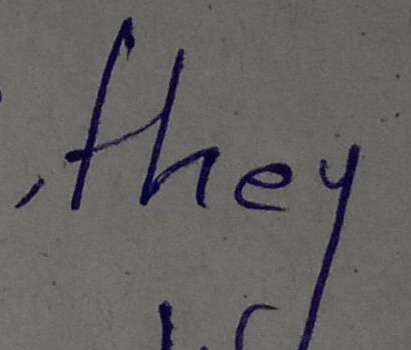 , they